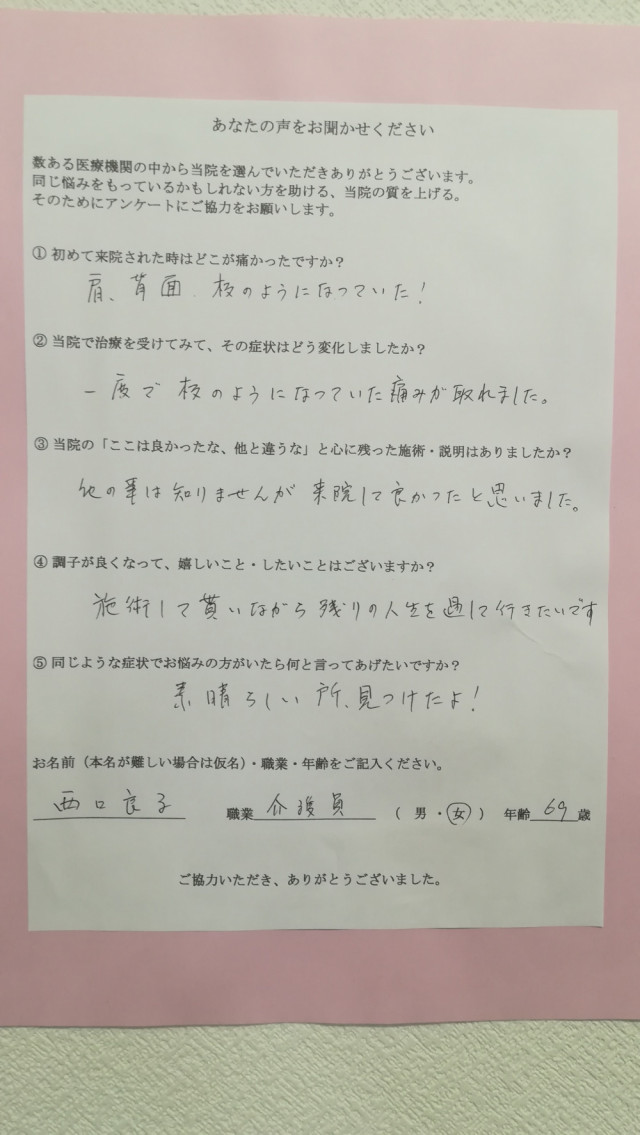 あなたの声をお聞かせください
数ある医療機関の中から当院を選んでいただきありがとうございます。
同じ悩みをもっているかもしれない方を助ける、当院の質を上げる。
そのためにアンケートにご協力をお願いします。
① 初めて来院された時はどこが痛かったですか？
肩、背面、板のようになっていた！
② 当院で治療を受けてみて、その症状はどう変化しましたか？
一度で板のようになっていた痛みが取れました。
③ 当院の「ここは良かったな、他と違うな」と心に残った施術・説明はありましたか？
他の事は知りませんが来院して良かったと思いました。
④ 調子が良くなって、嬉しいこと・したいことはございますか？
施術して貰いながら残りの人生を過して行きたいです
⑤ 同じような症状でお悩みの方がいたら何と言ってあげたいですか？
素晴らしい所、見つけたよ！
お名前（本名が難しい場合は仮名）・職業・年齢をご記入ください。
西口良子 職業 介護員 （ 男 ・ 女 ） 年齢 69 歳
ご協力いただき、ありがとうございました。